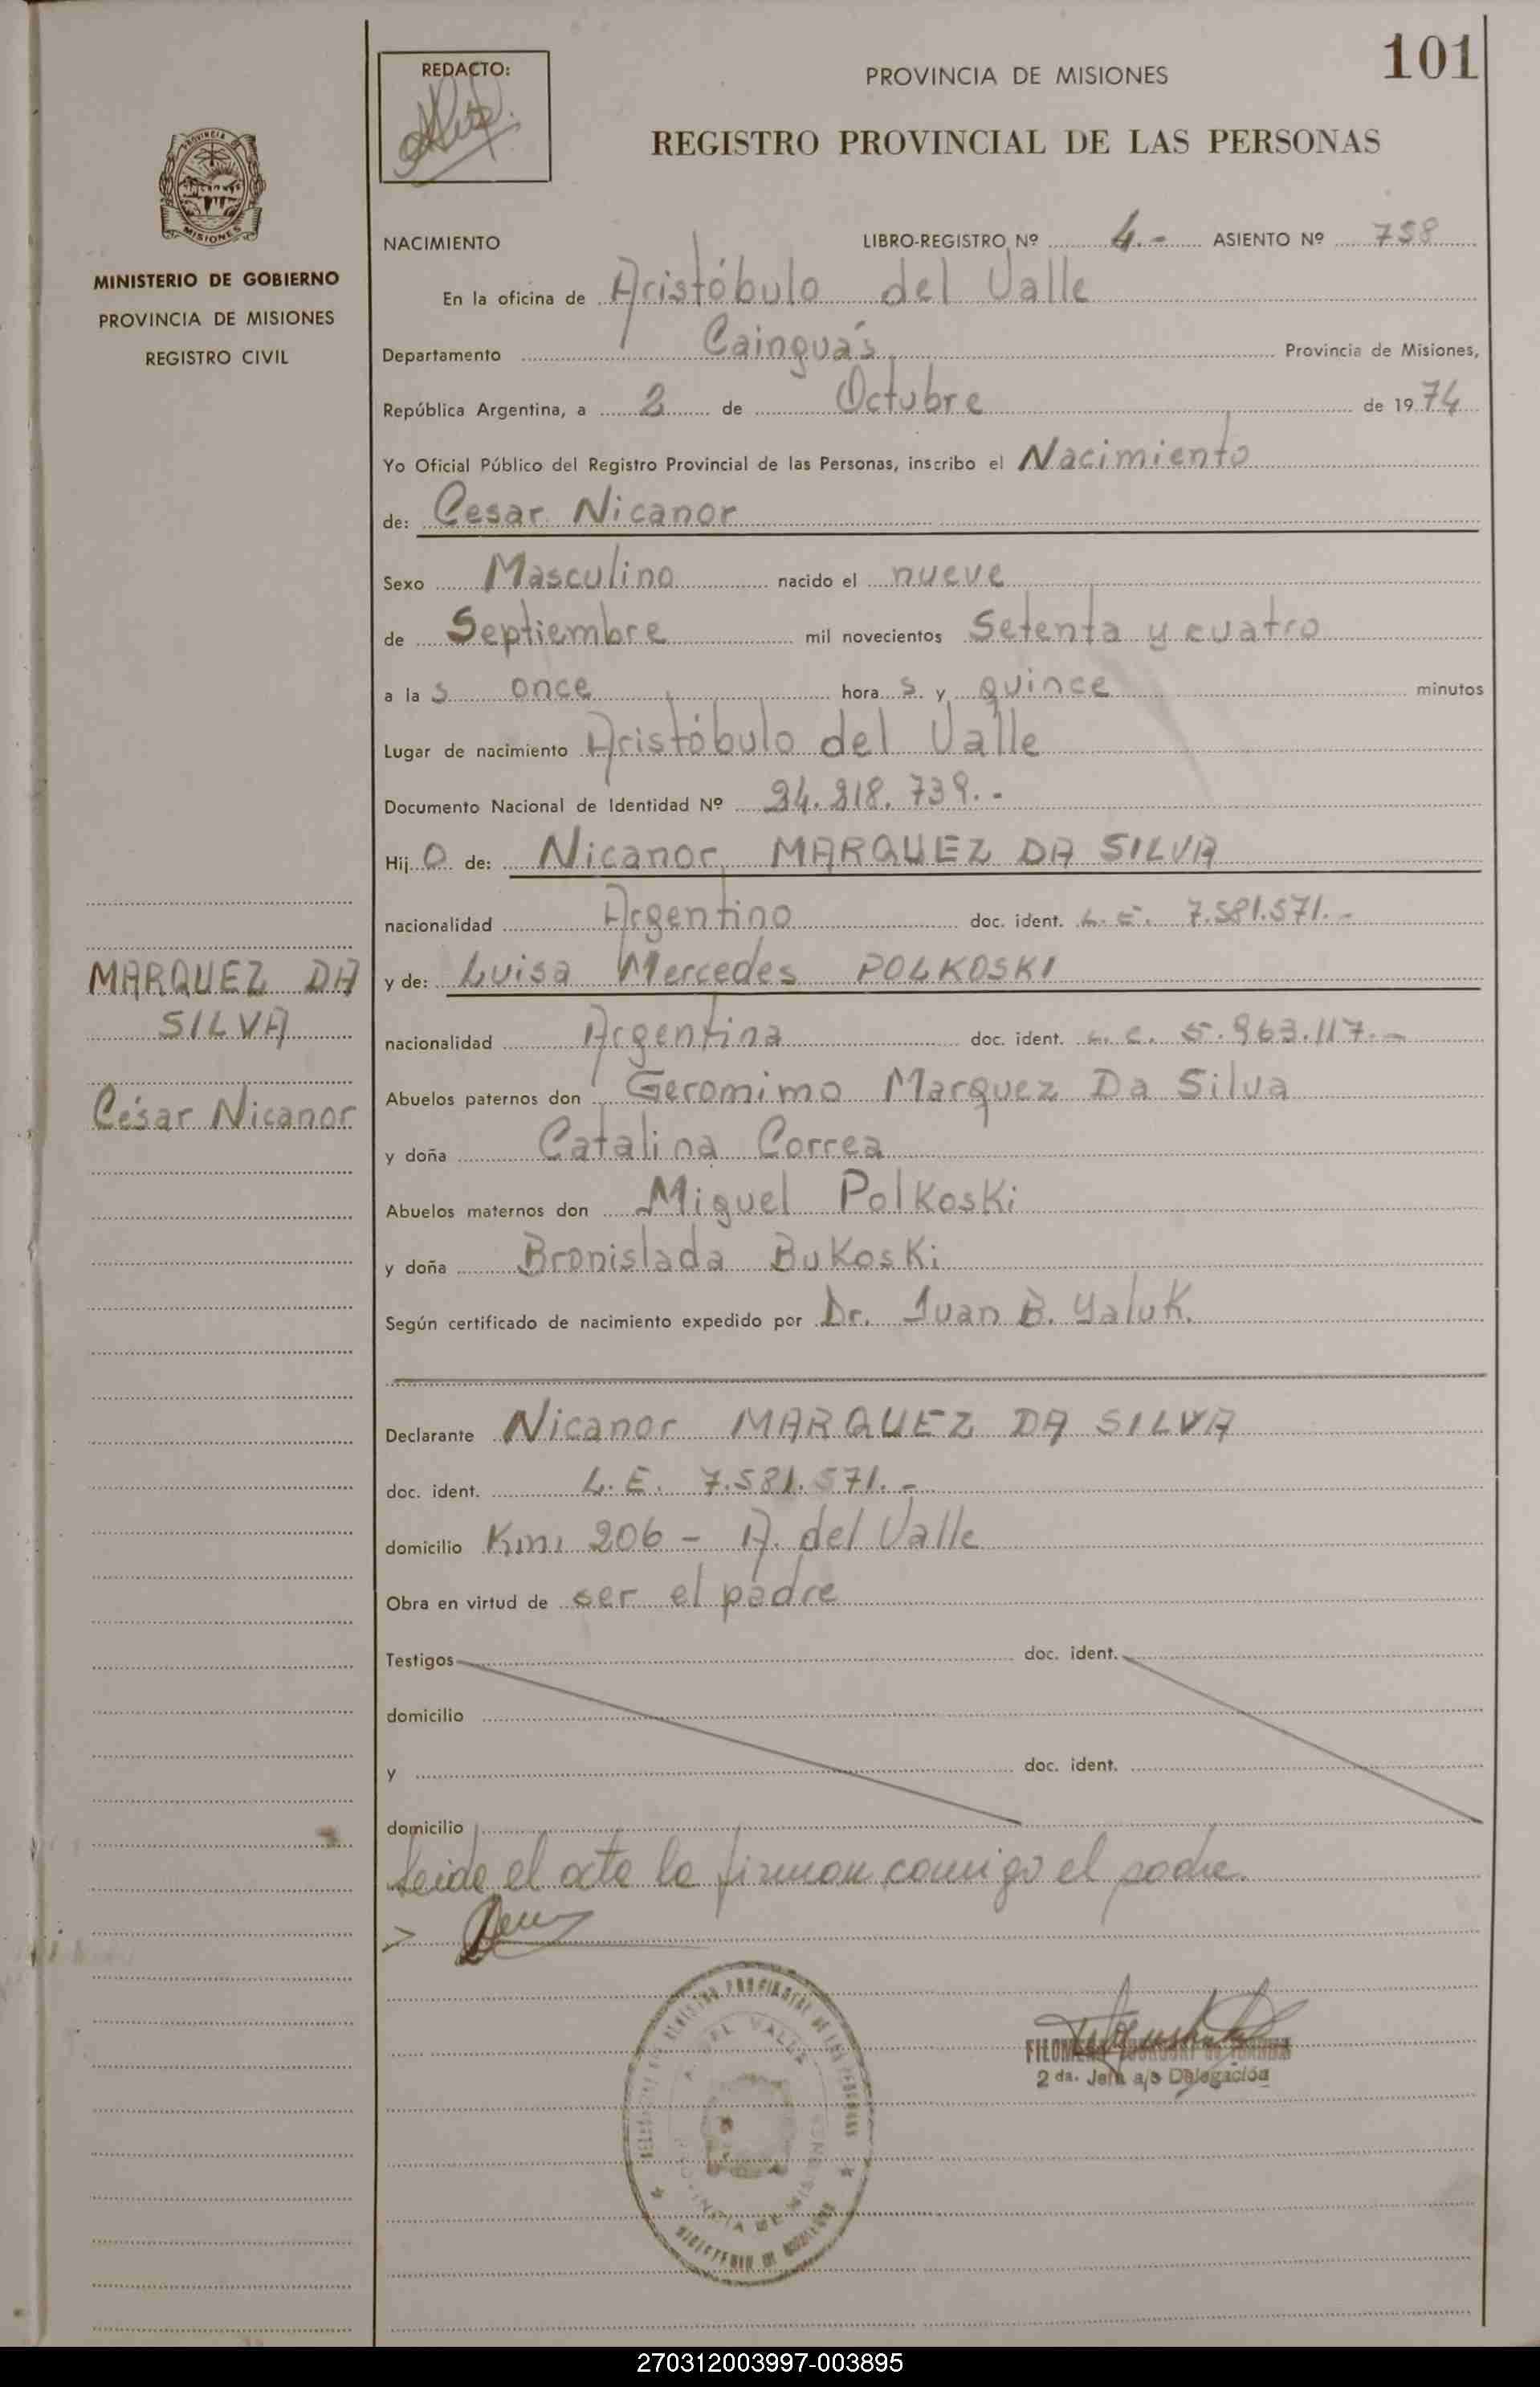 101
REDACTO:
PROVINCIA DE MISIONES
REGISTRO PROVINCIAL DE LAS PERSONAS
PROVINCIA
MISIONES
MINISTERIO DE GOBIERNO
PROVINCIA DE MISIONES
REGISTRO CIVIL
MARQUEZ DA
SILVA
César Nicanor
NACIMIENTO LIBRO-REGISTRO Nº 4.- ASIENTO Nº 758
En la oficina de Aristóbulo del Valle
Departamento Cainguás Provincia de Misiones,
República Argentina, a 2 de Octubre de 1974
Yo Oficial Público del Registro Provincial de las Personas, inscribo el Nacimiento
de: Cesar Nicanor
Sexo Masculino nacido el nueve
de Septiembre mil novecientos Setenta y cuatro
a la s once hora s y quince minutos
Lugar de nacimiento Aristóbulo del Valle
Documento Nacional de Identidad Nº 24.218.739.-
Hij o de: Nicanor MARQUEZ DA SILVA
nacionalidad Argentino doc. ident. L.E. 7.581.571.-
y de: Luisa Mercedes POLKOSKI
nacionalidad Argentina doc. ident. L.C. 5.963.117.-
Abuelos paternos don Geromimo Marquez Da Silva
y doña Catalina Correa
Abuelos maternos don Miguel Polkoski
y doña Bronislada Bukoski
Según certificado de nacimiento expedido por Dr. Juan B. Yaluk.
Declarante Nicanor MARQUEZ DA SILVA
doc. ident. L.E. 7.581.571.-
domicilio Km. 206 - A. del Valle
Obra en virtud de ser el padre
Testigos doc. ident.
domicilio
y doc. ident.
domicilio
Leida el acta la firman comigo el padre.
REGISTRO PROVINCIAL DE LAS PERSONAS
DEL VALLE
PROVINCIA DE MISIONES
MINISTERIO DE GOBIERNO
2 da. Jefa a/c Delegación
270312003997-003895